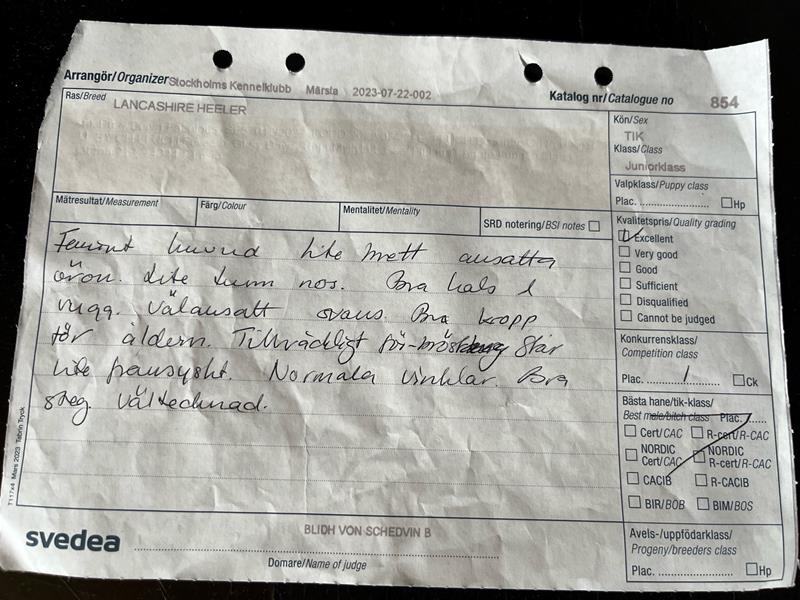 Arrangör/Organizer Stockholms Kennelklubb Märsta 2023-07-22-002
Katalog nr/Catalogue no 854
Ras/Breed LANCASHIRE HEELER
Kön/Sex
TIK
Klass/Class
Juniorklass
Valpklass/Puppy class
Plac. Hp
Mätresultat/Measurement Färg/Colour Mentalitet/Mentality SRD notering/BSI notes
Feminint hund lite brett ansatta
öron. Lite tunn nos. Bra hals &
rygg. Välansatt svans. Bra kropp
för åldern. Tillräckligt för-bröst Står
lite fransyskt. Normala vinklar. Bra
steg. Vältecknad.
Kvalitetspris/Quality grading
Excellent
Very good
Good
Sufficient
Disqualified
Cannot be judged
Konkurrensklass/
Competition class
Plac. 1 Ck
Bästa hane/tik-klass/
Best male/bitch class Plac.
Cert/CAC R-cert/R-CAC
NORDIC Cert/CAC NORDIC R-cert/R-CAC
CACIB R-CACIB
BIR/BOB BIM/BOS
Avels-/uppfödarklass/
Progeny/breeders class
Plac. Hp
svedea
BLIDH VON SCHEDVIN B
Domare/Name of judge
T117x4 Mars 2023 Tabrin Tryck